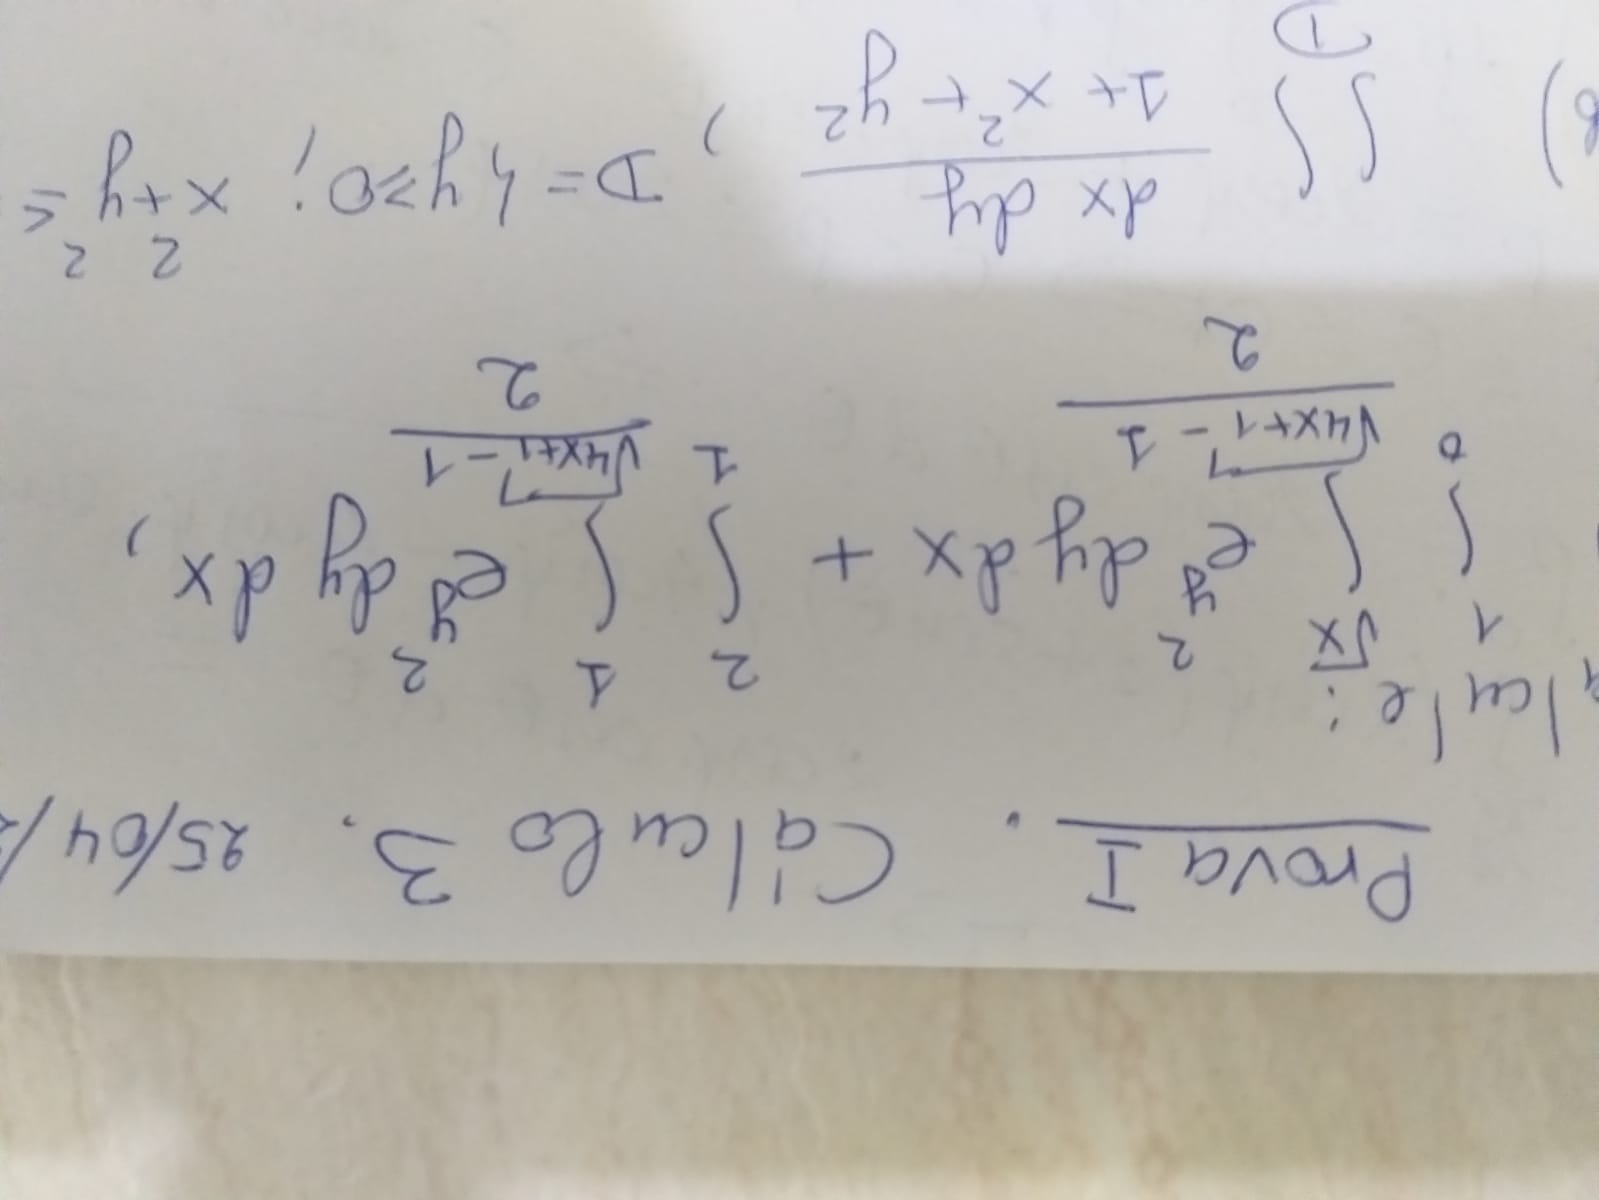 Prova I . Cálculo 3. 25/04/
alcule:
∫₀¹ ∫_{(√(4x+1) - 1)/2}^{√x} e^{y²} dy dx + ∫₁² ∫_{(√(4x+1) - 1)/2}^{1} e^{y²} dy dx,
b) ∫∫_D dx dy / (1 + x² + y²), D = { y ≥ 0; x² + y² ≤